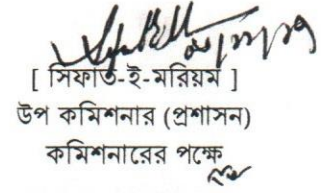 [ সিফাত-ই-মরিয়ম ]
উপ কমিশনার (প্রশাসন)
কমিশনারের পক্ষে